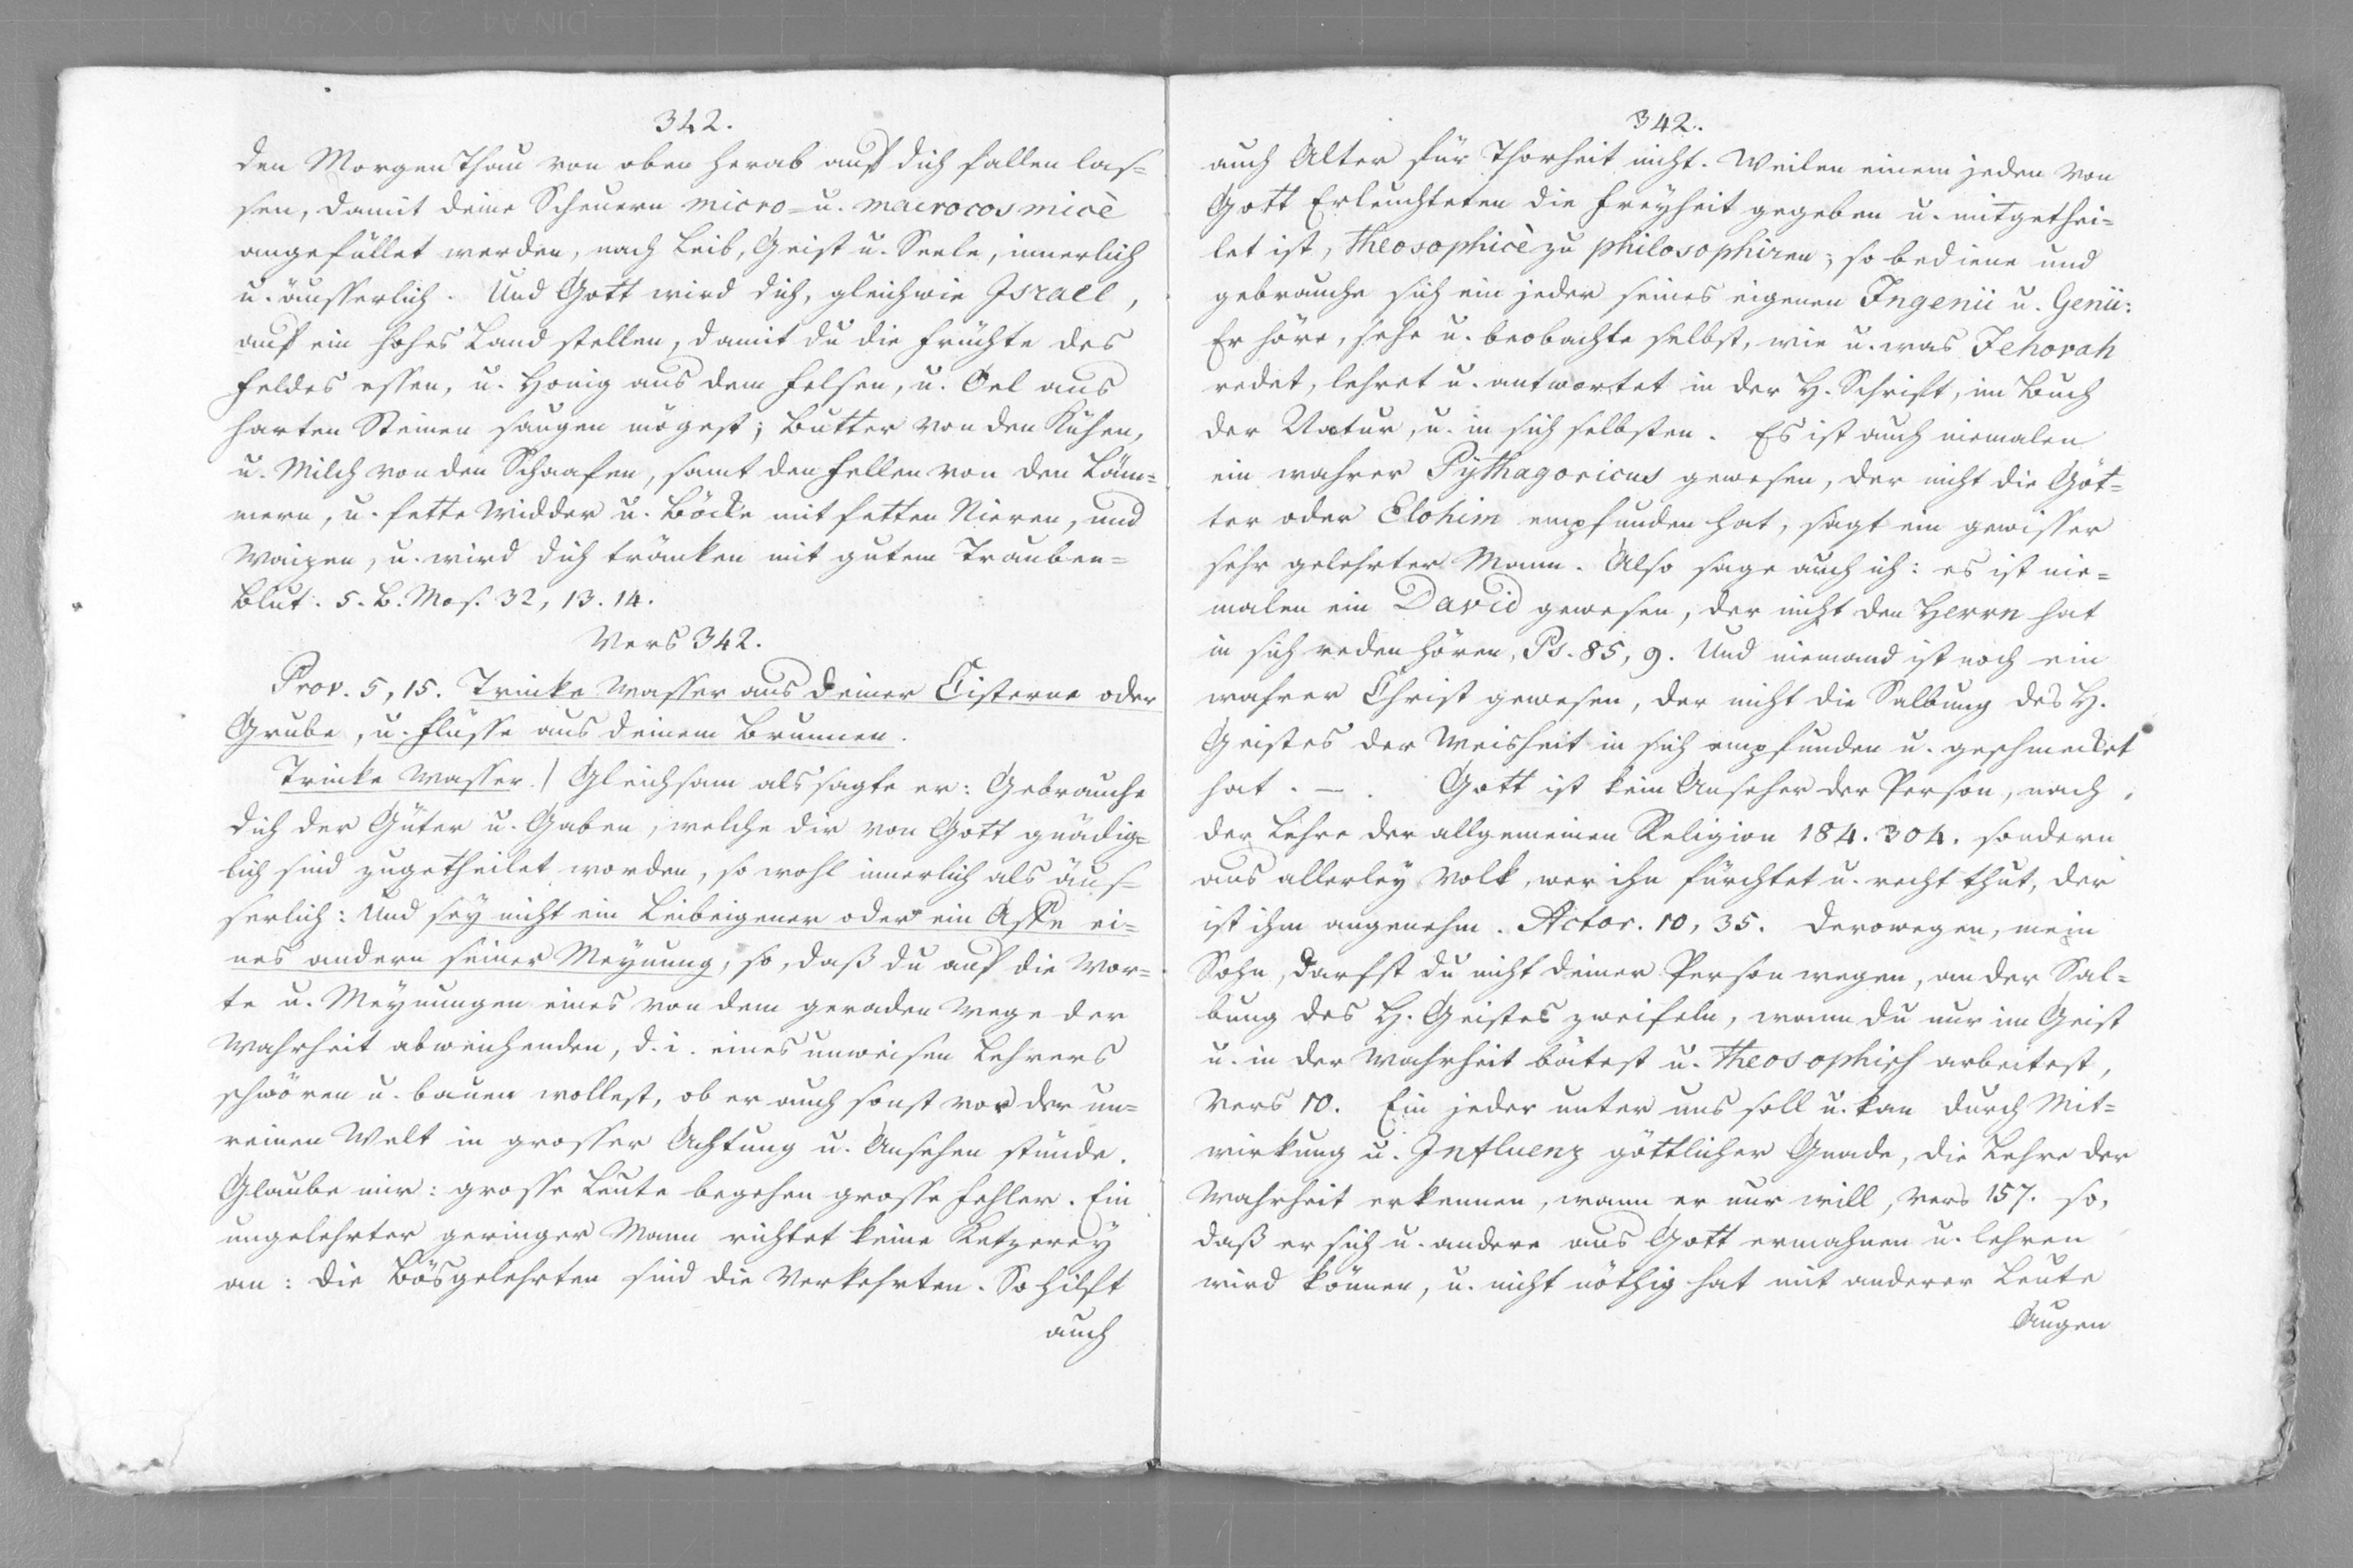 342.
den Morgen Thau von oben herab auf dich fallen las=
sen, damit deine Scheuern micro= u. macrocosmicè
angefüllet werden, nach Leib, Geist u. Seele, innerlich
u. äusserlich. Und Gott wird dich, gleichwie Israel,
auf ein hohes Land stellen, damit du die Früchte des
Feldes essen, u. Honig aus dem Felsen, u. Oel aus
harten Steinen saugen mögest; Butter von den Kühen,
u. Milch von den Schaafen, samt den Fellen von den Läm=
mern, u. fette Widder u. Böcke mit fetten Nieren, und
Waizen, u. wird dich tränken mit gutem Trauben=
Blut. 5. B. Mos. 32, 13. 14.
Vers 342.
Prov. 5, 15. Trinke Wasser aus deiner Cisterne oder
Grube, u. Flüsse aus deinem Brunnen.
Trinke Wasser.) Gleichsam als sagte er: Gebrauche
dich der Güter u. Gaben, welche dir von Gott gnädig=
lich sind zugetheilet worden, so wohl innerlich als äus=
serlich: Und sey nicht ein Leibeigener oder ein Affe ei=
nes andern seiner Meynung, so, daß du auf die Wor=
te u. Meynungen eines von dem geraden Wege der
Wahrheit abweichenden, d. i. eines unweisen Lehrers
schwören u. bauen wollest, ob er auch sonst vor der un=
reinen Welt in grosser Achtung u. Ansehen stünde.
Glaube mir: grosse Leute begehen grosse Fehler. Ein
ungelehrter geringer Mann richtet keine Ketzerey
an: die Bösgelehrten sind die Verkehrten. So hilft
auch
342.
auch Alter für Thorheit nicht. Weilen einem jeden von
Gott Erleuchteten die Freyheit gegeben u. mitgethei=
let ist, Theosophicè zu philosophiren; so bediene und
gebrauche sich ein jeder seines eigenen Ingenii u. Genii:
Er höre, sehe u. beobachte selbst, wie u. was Jehovah
redet, lehret u. antwortet in der H. Schrift, im Buch
der Natur, u. in sich selbsten. Es ist auch niemalen
ein wahrer Pythagoricus gewesen, der nicht die Göt=
ter oder Elohim empfunden hat, sagt ein gewisser
sehr gelehrter Mann. Also sage auch ich: es ist nie=
malen ein David gewesen, der nicht den Herrn hat
in sich reden hören, Ps. 85, 9. Und niemand ist noch ein
wahrer Christ gewesen, der nicht die Salbung des H.
Geistes der Weisheit in sich empfunden u. geschmecket
hat. —. Gott ist kein Anseher der Person, nach
der Lehre der allgemeinen Religion 184. 304. sondern
aus allerley Volk, wer ihn fürchtet u. recht thut, der
ist ihm angenehm. Actor. 10, 35. Derowegen, mein
Sohn, darfst du nicht deiner Person wegen, an der Sal=
bung des H. Geistes zweifeln, wann du nur im Geist
u. in der Wahrheit bätest u. Theosophisch arbeitest,
Vers 10. Ein jeder unter uns soll u. kan durch Mit=
wirkung u. Influenz göttlicher Gnade, die Lehre der
Wahrheit erkennen, wann er nur will, Vers 157. so,
daß er sich u. andere aus Gott ermahnen u. lehren
wird können, u. nicht nöthig hat mit anderer Leute
Augen